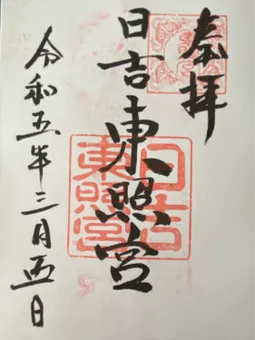 奉拝
日吉東照宮
日吉東照宮
令和五年三月五日